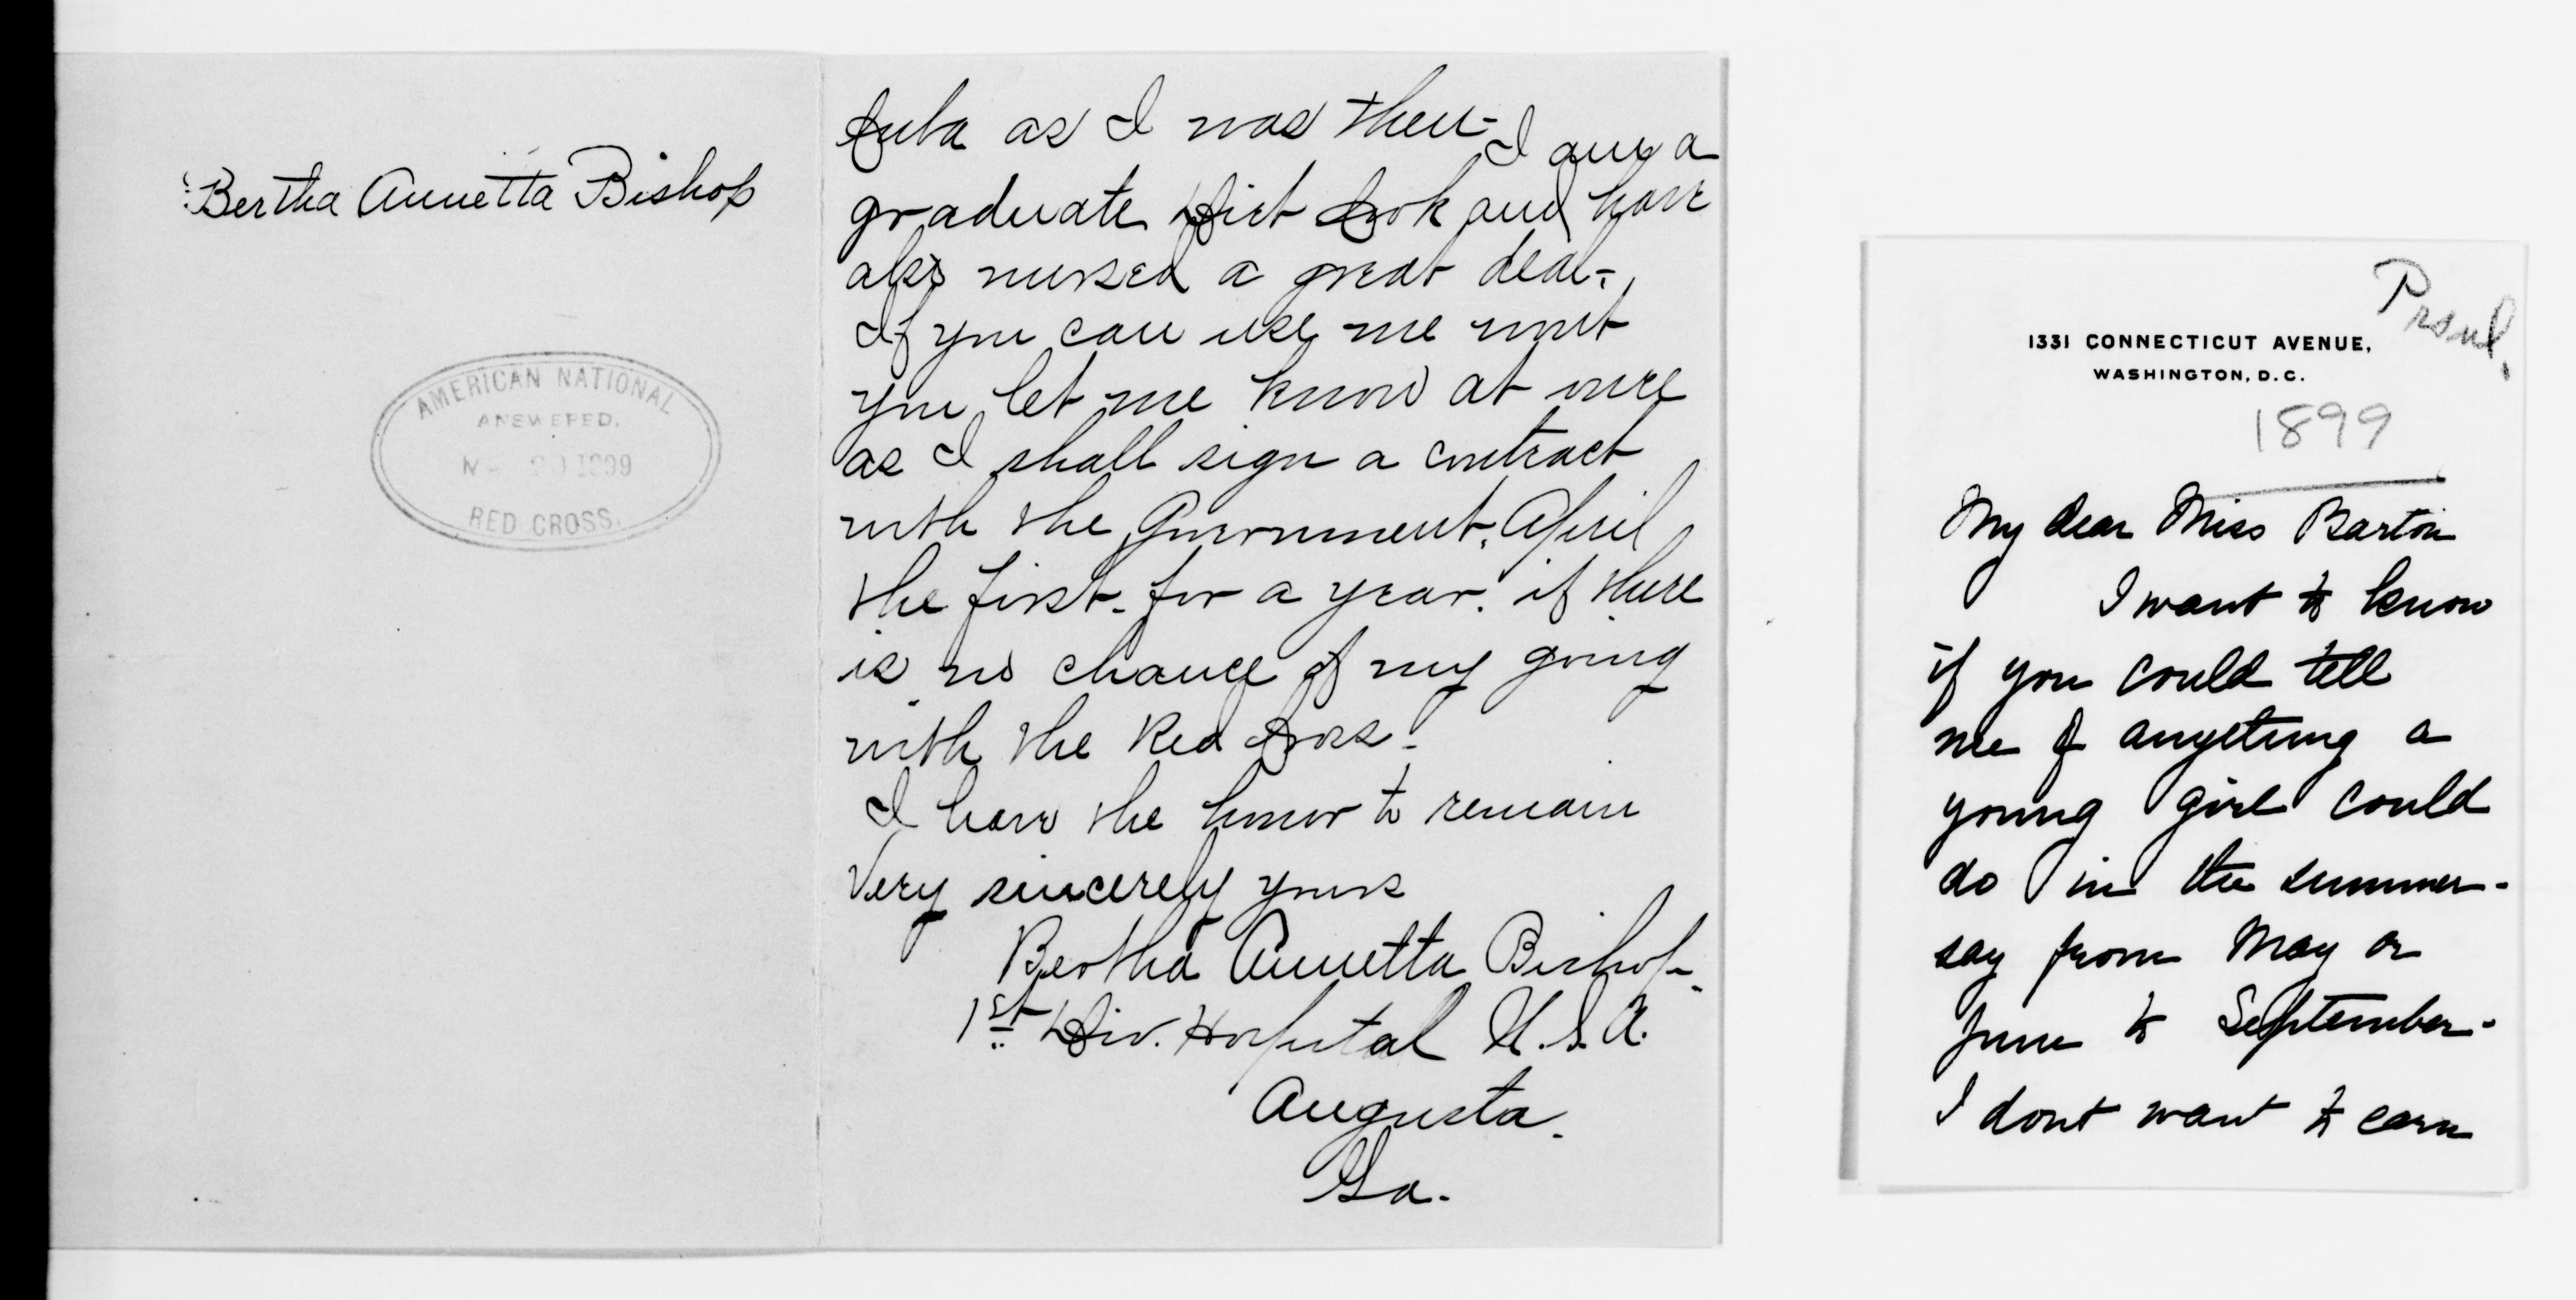 Bertha Annetta Bishop
AMERICAN NATIONAL
ANSWERED.
1899
RED CROSS.
Cuba as I was then - I am a
graduate Diet Cook and have
also nursed a great deal -
If you can use me wont
you let me know at once
as I shall sign a contract
with the Government, April
the first - for a year. if there
is no chance of my going
with the Red Cross -
I have the honor to remain
Very sincerely yours
Bertha Annetta Bishop -
1st Div. Hospital U.S.A.
Augusta.
Ga.
Prsnl.
1331 CONNECTICUT AVENUE,
WASHINGTON, D.C.
1899
My dear Miss Barton
I want to know
if you could tell
me of anything a
young girl could
do in the summer -
say from May or
June to September -
I dont want to earn